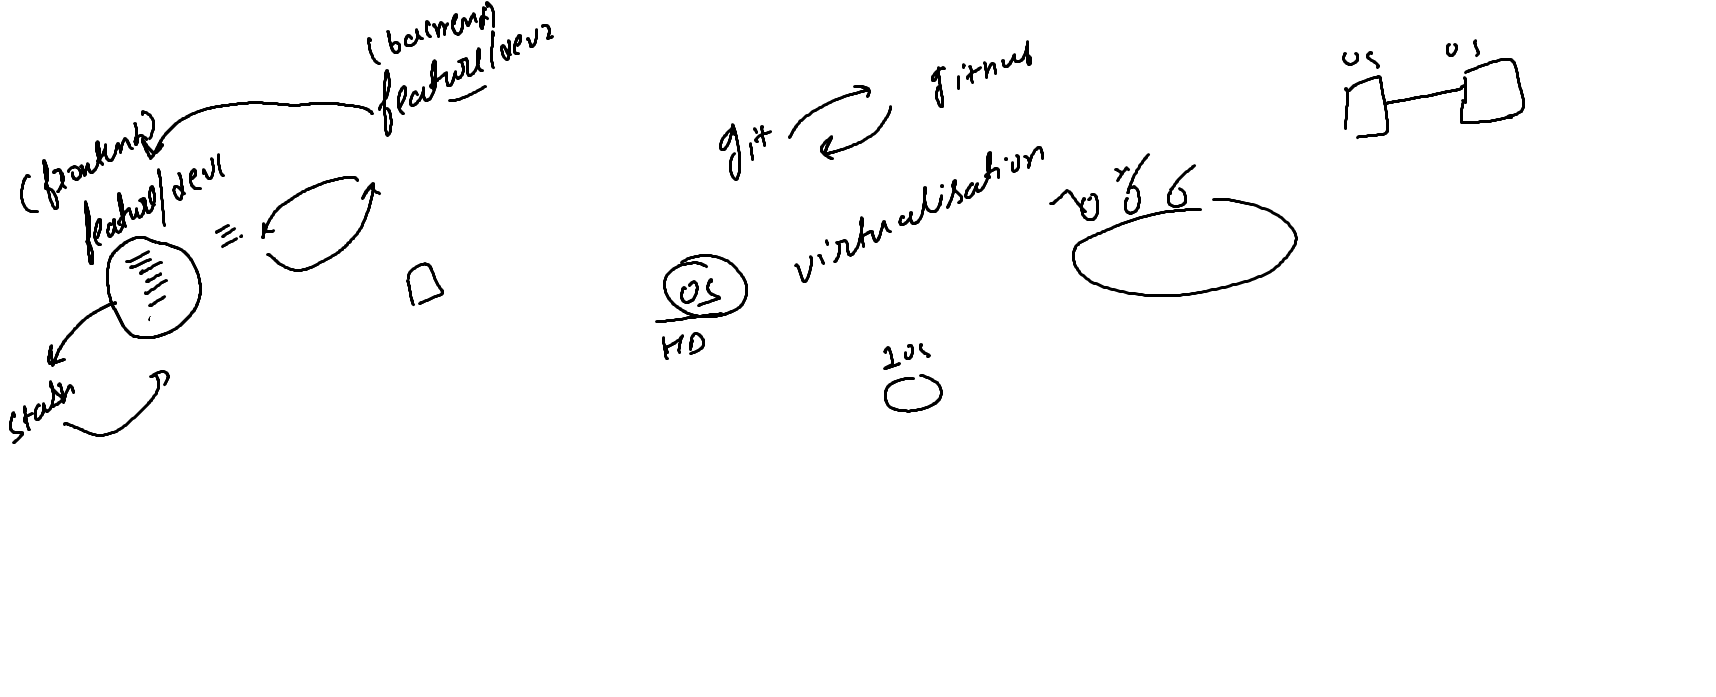 (backend)
feature/dev2
(frontend)
feature/dev1
stash
git
github
OS
HD
virtualisation
1 os
os
os